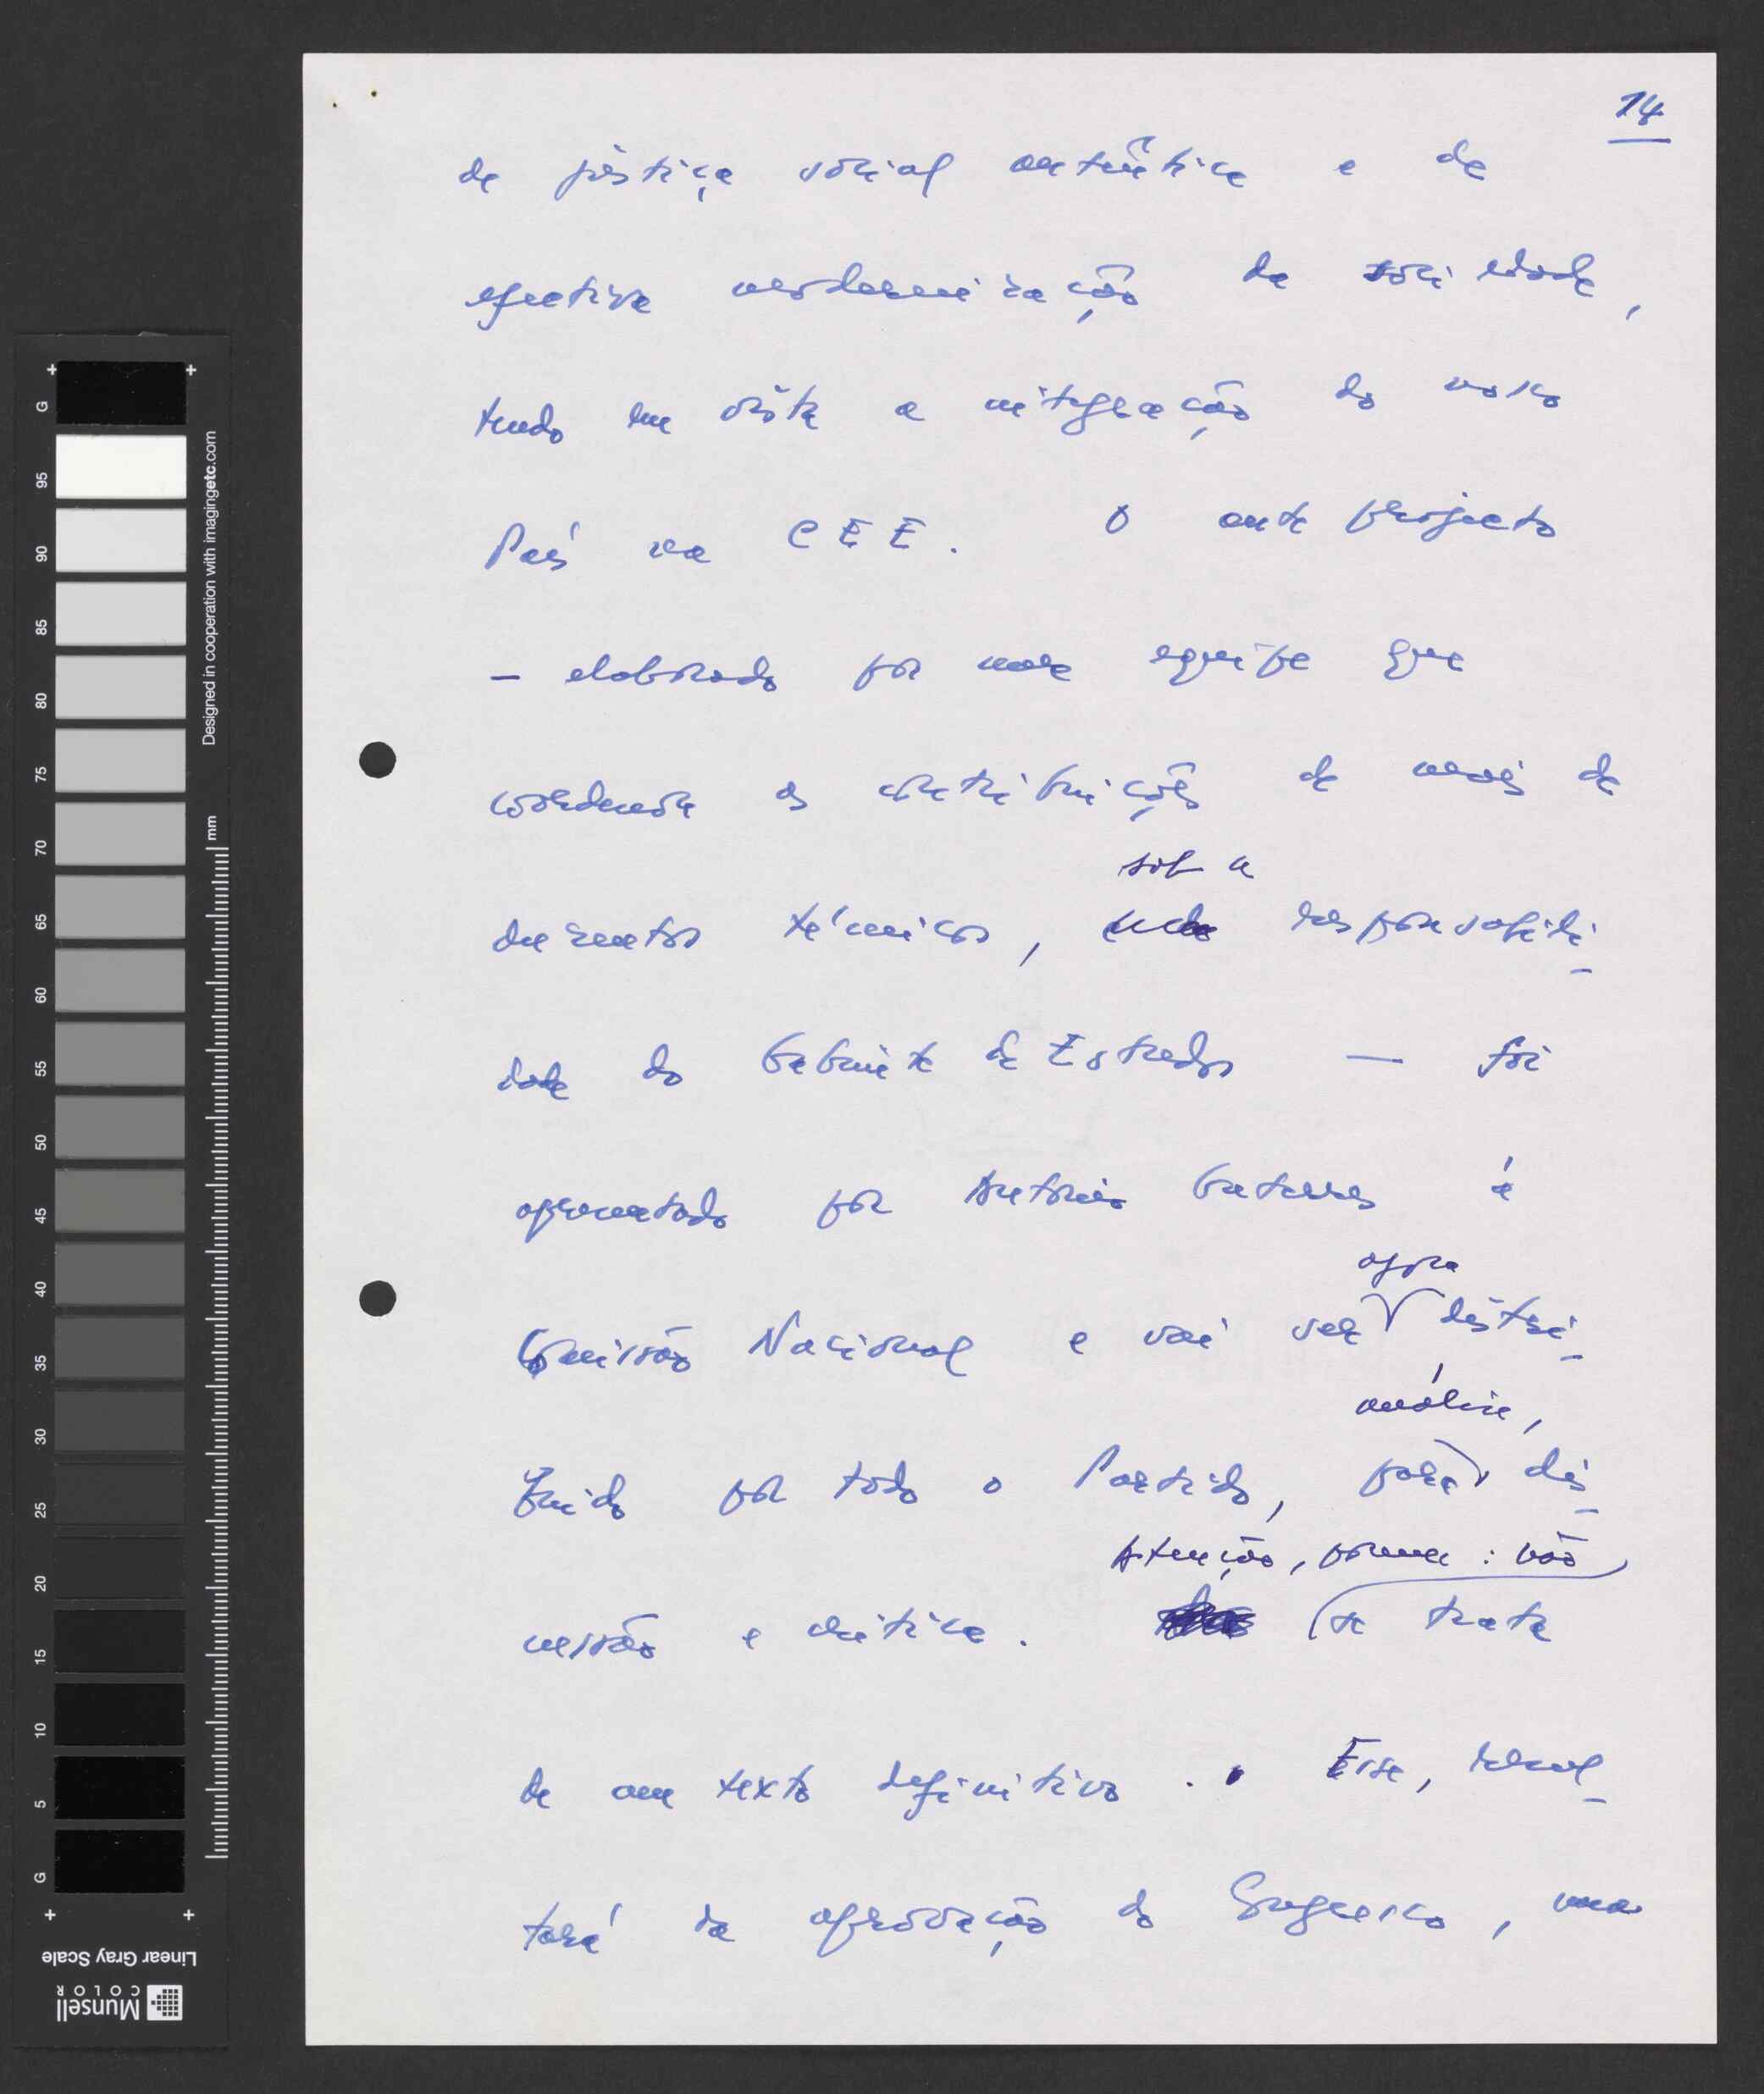 14
de justiça social autêntica e de
efectiva modernização da sociedade,
tendo em vista a integração do nosso
País na CEE. O ante projecto
— elaborado por uma equipe que
coordenou as contribuições de mais de
sob a
duzentos técnicos, responsabili-
dade do Gabinete de Estudos — foi
apresentado por António Guterres à
agora
Comissão Nacional e vai ser distri-
análise,
buído por todo o Partido, para dis-
Atenção, porém: não
cussão e crítica. se trata
de um texto definitivo. Esse, resul-
tará da aprovação do Congresso, uma
G 95 90 85 80 75 70 65 60 55 50 45 40 35 30 25 20 15 10 5 G
Designed in cooperation with imagingetc.com
mm
Linear Gray Scale
Munsell
COLOR